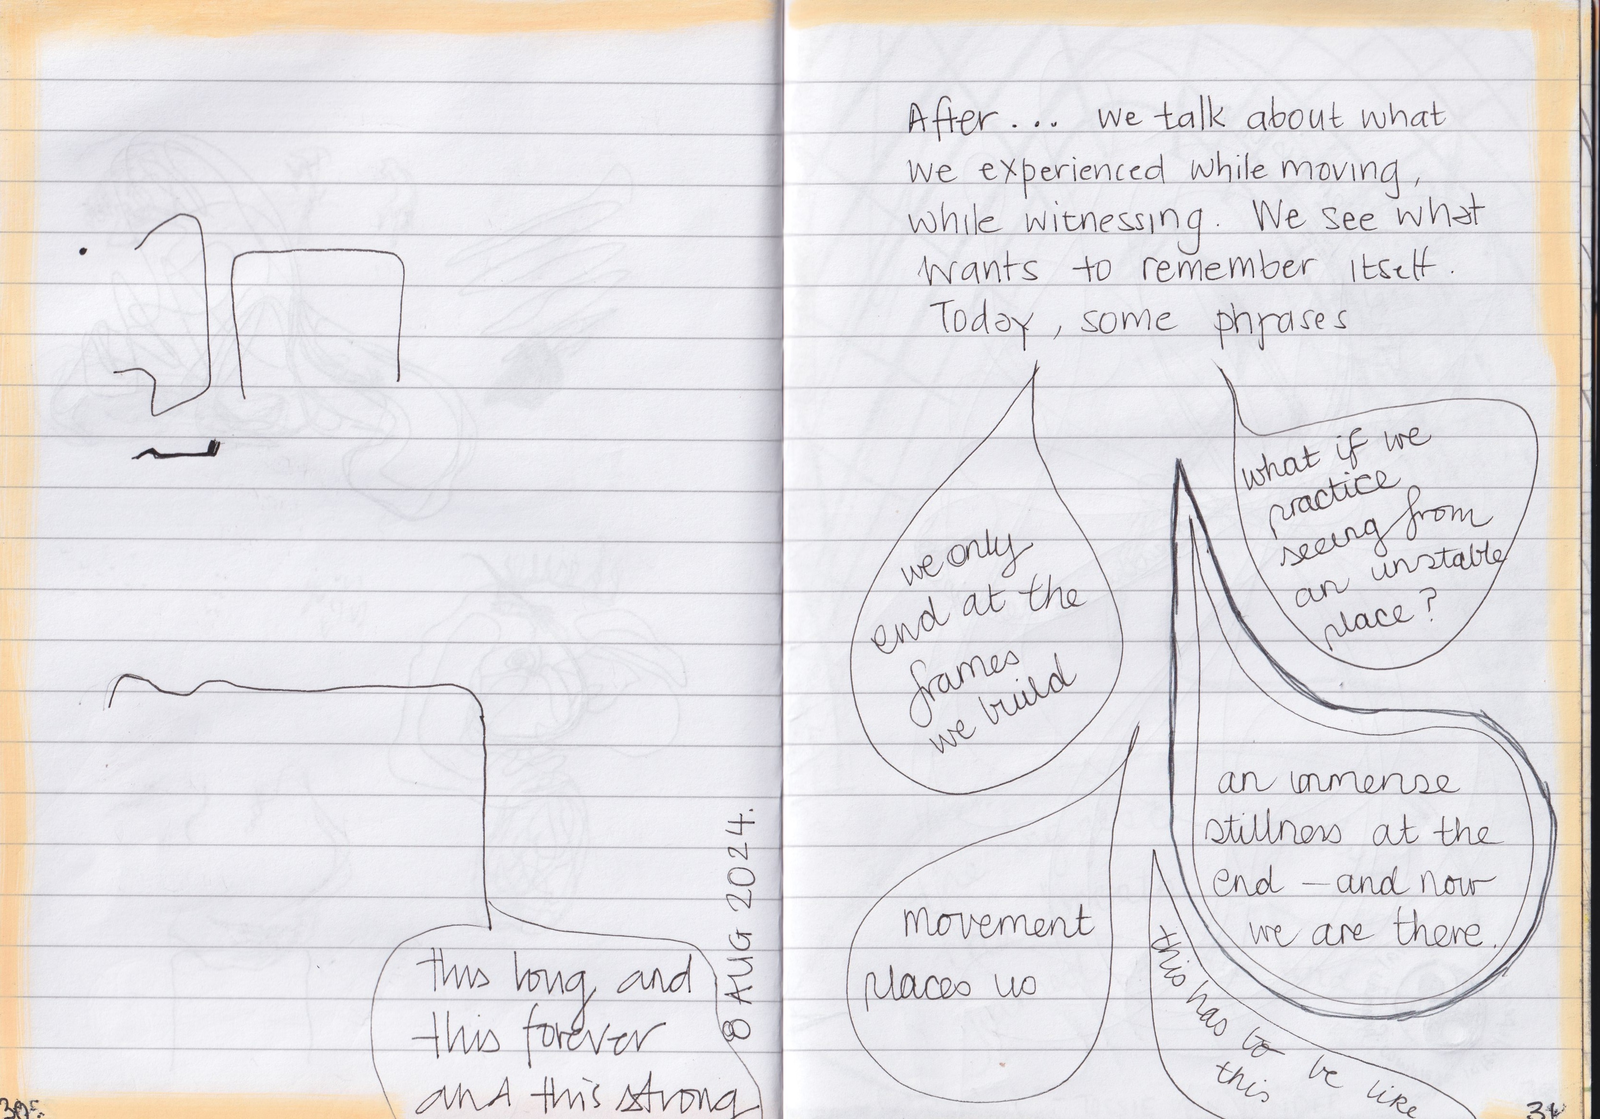 this long and
this forever
and this strong
8 AUG 2024.
After... we talk about what
we experienced while moving,
while witnessing. We see what
wants to remember itself.
Today, some phrases
we only
end at the
frames
we build
what if we
practice
seeing from
an unstable
place?
an immense
stillness at the
end – and now
we are there.
movement
places us
this has to be like
this